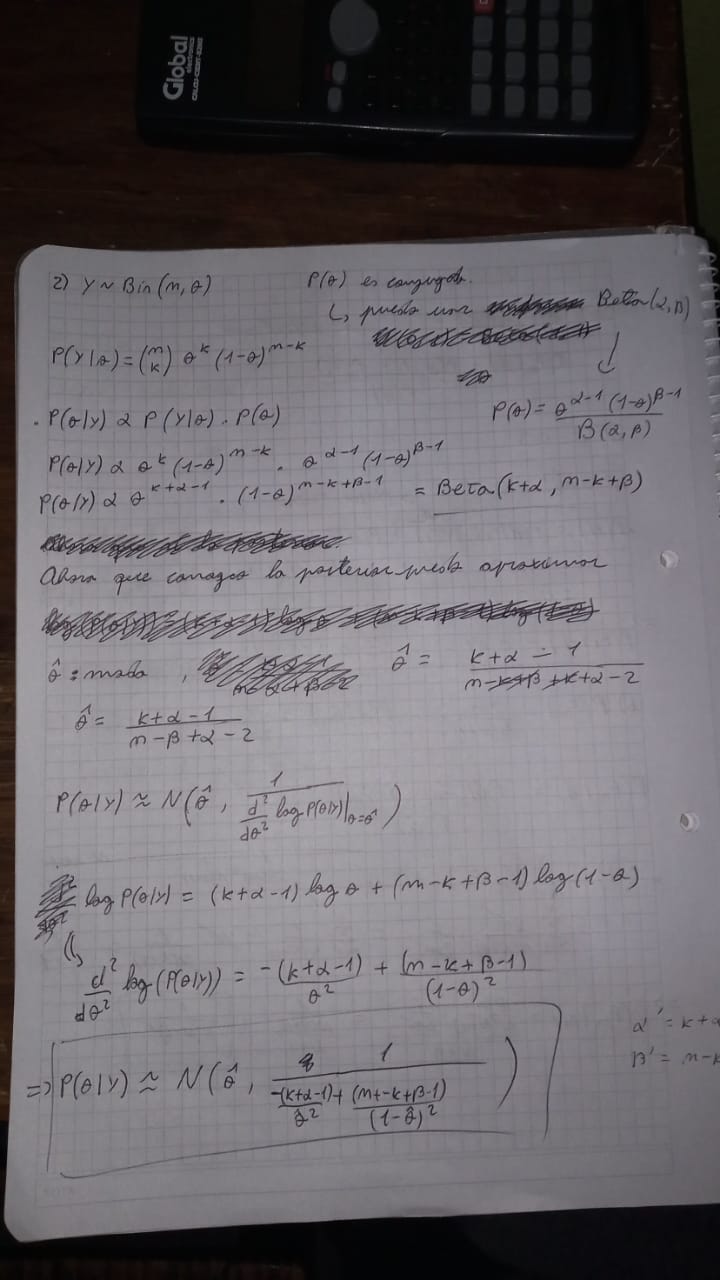 Global
electronics
2) Y ~ Bin(n, θ)
P(θ) es conjugada.
↳ puedo usar Beta(α, β)
P(Y|θ) = (n k) θ^k (1-θ)^{n-k}
P(θ) = θ^{α-1} (1-θ)^{β-1} / B(α, β)
. P(θ|Y) α P(Y|θ) . P(θ)
P(θ|Y) α θ^k (1-θ)^{n-k} . θ^{α-1} (1-θ)^{β-1}
P(θ|Y) α θ^{k+α-1} . (1-θ)^{n-k+β-1} = Beta(k+α, n-k+β)
Ahora que conozco la posterior puedo aproximar
θ̂ = moda , θ̂ = (k+α-1) / (n-k+β+k+α-2)
θ̂ = (k+α-1) / (n-β+α-2)
P(θ|Y) ≈ N(θ̂, 1 / (d²/dθ² log P(θ|Y)|_{θ=θ̂}))
log P(θ|Y) = (k+α-1) log θ + (n-k+β-1) log(1-θ)
d²/dθ² log(P(θ|Y)) = -(k+α-1)/θ² + (n-k+β-1)/(1-θ)²
α' = k+α
β' = n-k
=> P(θ|Y) ≈ N(θ̂, 1 / (-(k+α-1)/θ̂² + (n+-k+β-1)/(1-θ̂)²))